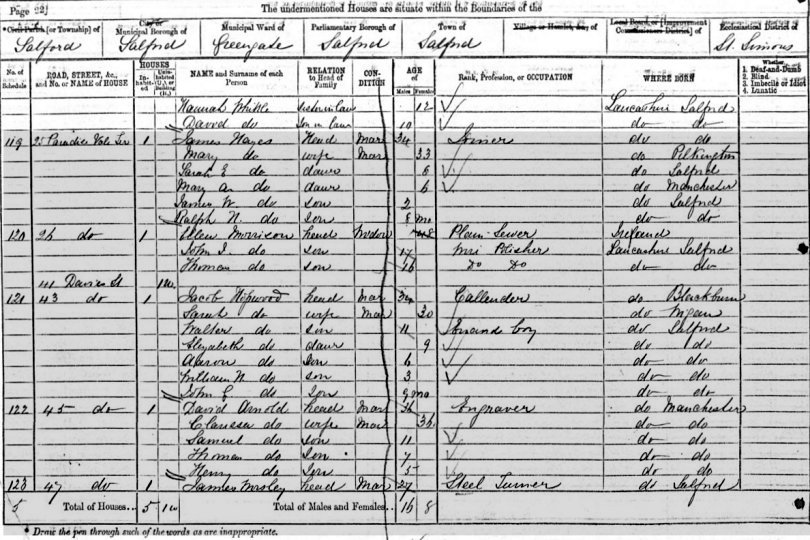 Page 22] The undermentioned Houses are situate within the Boundaries of the
Civil Parish [or Township] of Municipal Borough of Municipal Ward of Parliamentary Borough of Town of Village or Hamlet, &c., of Local Board, or [Improvement Commissioners District] of Ecclesiastical District of
Salford Salford Greengate Salford Salford St. Simons
No. of Schedule ROAD, STREET, &c., and No. or NAME of HOUSE HOUSES Inhabited Uninhabited (U.), or Building (B.) NAME and Surname of each Person RELATION to Head of Family CONDITION AGE of Males Females Rank, Profession, or OCCUPATION WHERE BORN Whether 1. Deaf-and-Dumb 2. Blind 3. Imbecile or Idiot 4. Lunatic
Hannah Whittle Sister in law 12 Lancashire Salford
David do Son in law 10 do do
119 25 Paradise 1 James Hayes Head Mar 34 Joiner do do
Mary do wife Mar 33 do Pilkington
Sarah E do daur 8 do Salford
Mary A do daur 6 do Manchester
James W do son 2 do Salford
Ralph N. do Son 8 mo do do
120 26 do 1 Ellen Morrison head Widow 48 Plain Sewer Ireland
John J. do son 17 Polisher Lancashire Salford
Thomas do son 16 Do Do do do
41 Davies St 1u
121 43 do 1 Jacob head Mar 34 Callender do Blackburn
Sarah do wife Mar 30 do Wigan
Walter do son 11 Errand boy do Salford
Elizabeth do daur 9 do do
Aaron do Son 6 do do
William N do son 3 do do
John do Son 9 mo do do
122 45 do 1 David Arnold head Mar 36 Engraver do Manchester
Clarissa do wife Mar 36 do do
Samuel do son 11 do do
Thomas do Son 7 do do
Henry do Son 5 do do
123 47 do 1 James Worsley head Mar 27 Steel Turner do Salford
5 Total of Houses... 5 1u Total of Males and Females... 16 8
* Draw the pen through such of the words as are inappropriate.